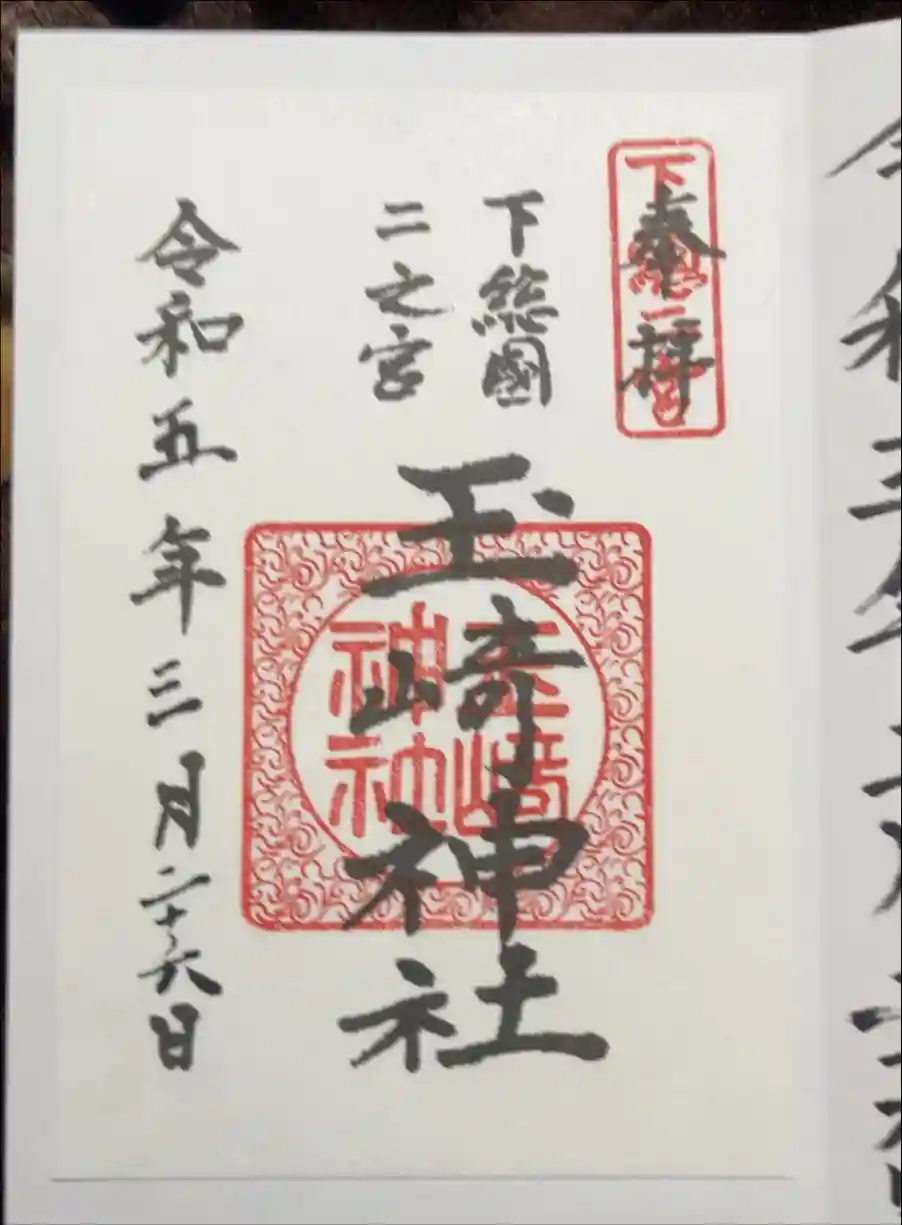 奉拝
下総二宮
下総國
二之宮
玉崎神社
玉崎神社
令和五年三月二十六日